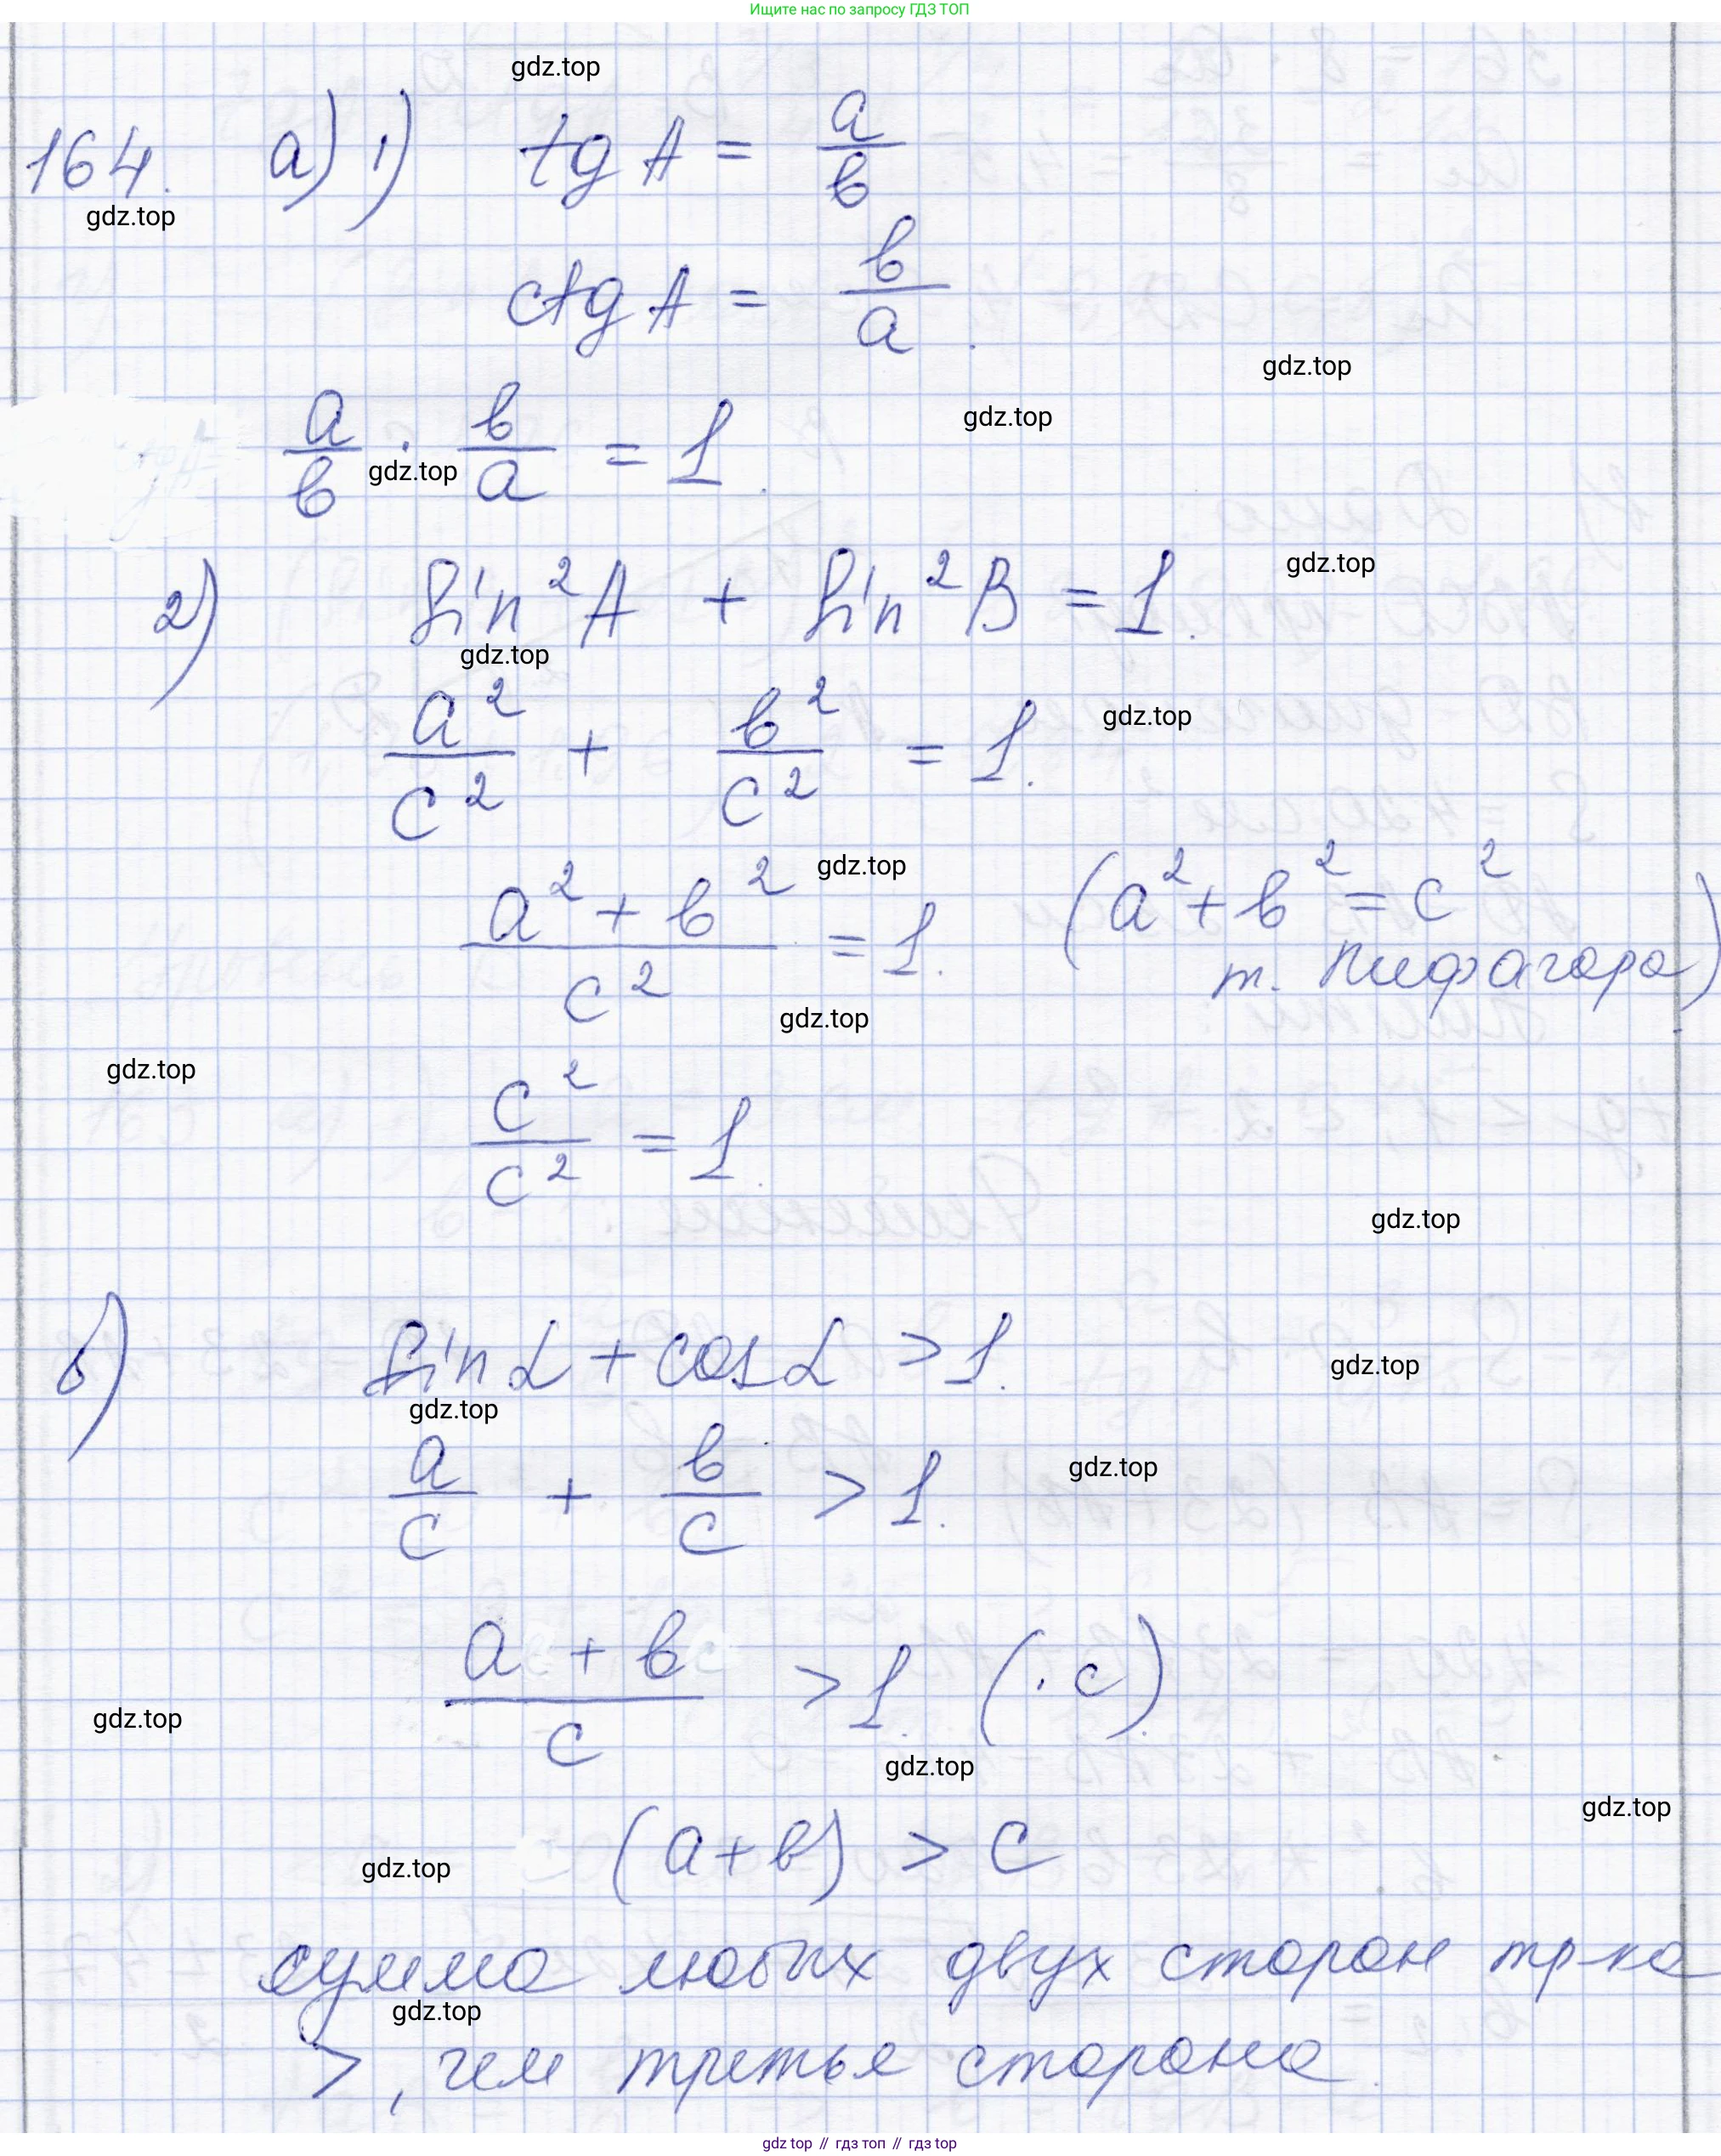 Ищите нас по запросу ГДЗ ТОП
gdz.top
164. а) 1) tg A = a/b
gdz.top
ctg A = b/a.
gdz.top
gdz.top
a/b · b/a = 1.
gdz.top
2) sin²A + sin²B = 1.
gdz.top
gdz.top
a²/c² + b²/c² = 1.
gdz.top
(a² + b² = c²
gdz.top
(a² + b²)/c² = 1.
т. Пифагора)
gdz.top
gdz.top
c²/c² = 1.
gdz.top
б) sin α + cos α > 1.
gdz.top
gdz.top
a/c + b/c > 1.
gdz.top
(a + b)/c > 1. (· c).
gdz.top
gdz.top
gdz.top
(a + b) > c
gdz.top
сумма любых двух сторон тр-ка
gdz.top
>, чем третья сторона.
gdz top // гдз топ // gdz top